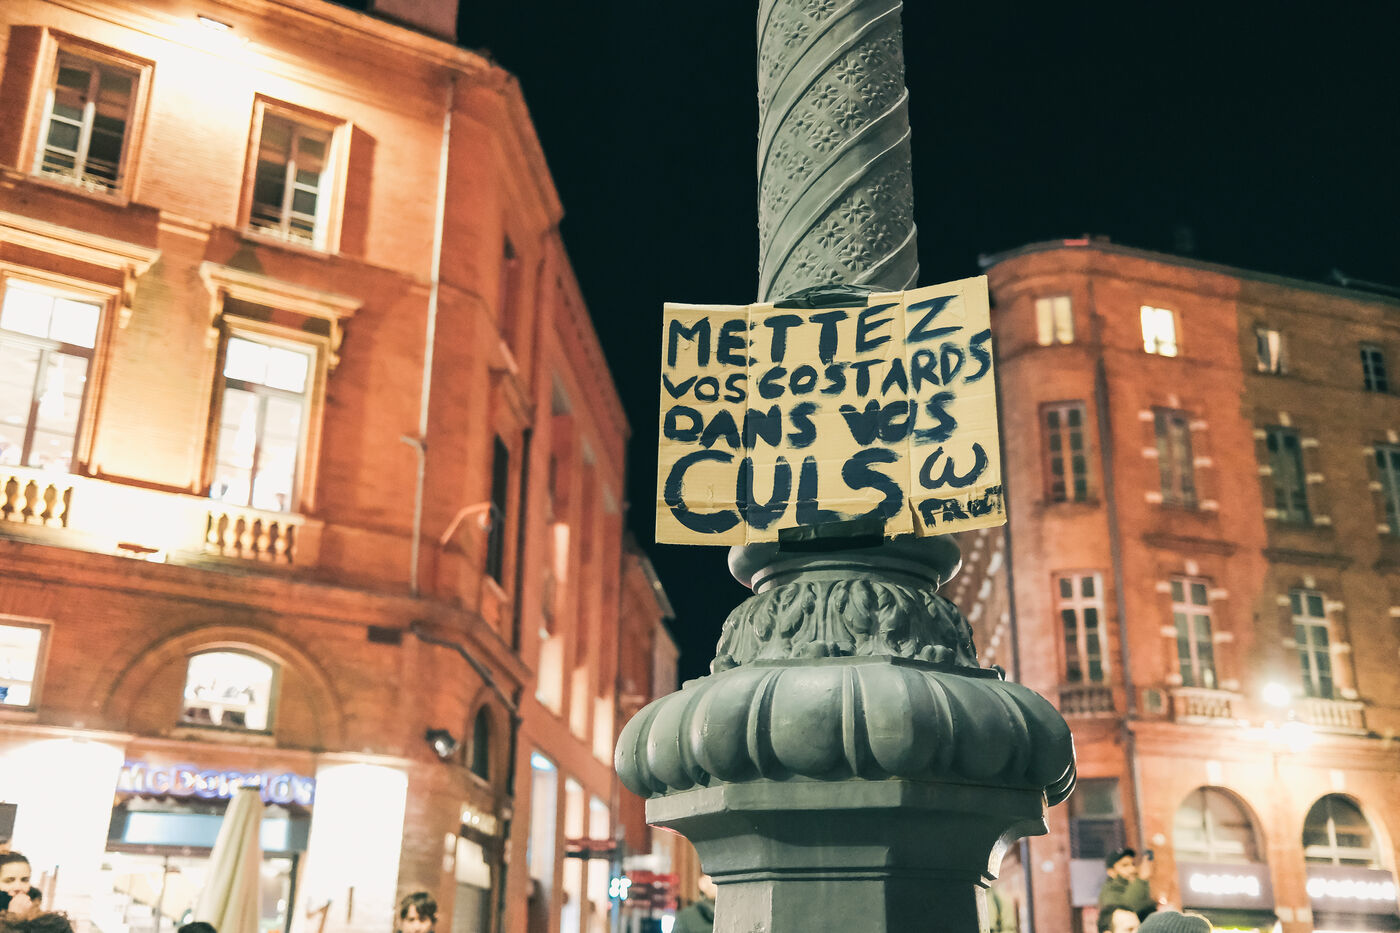 METTEZ
VOS COSTARDS
DANS VOS
CULS ω
McDonald's